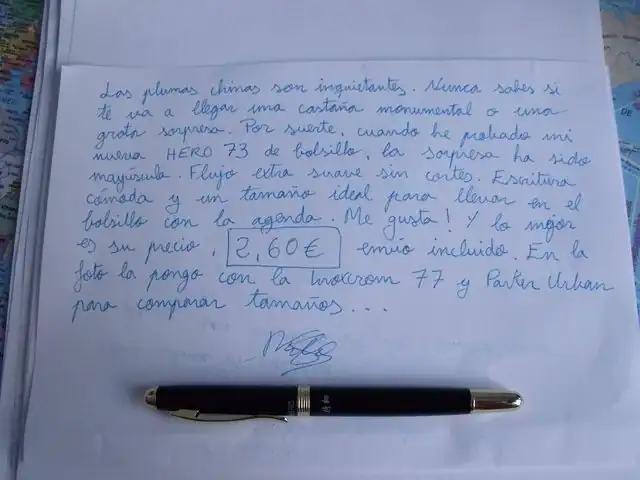 Las plumas chinas son inquietantes. Nunca sabes si
te va a llegar una castaña monumental o una
grata sorpresa. Por suerte, cuando he probado mi
nueva HERO 73 de bolsillo, la sorpresa ha sido
mayúscula. Flujo extra suave sin cortes. Escritura
cómoda y un tamaño ideal para llevar en el
bolsillo con la agenda. Me gusta! Y lo mejor
es su precio, 2,60€ envío incluido. En la
foto la pongo con la Inoxcrom 77 y Parker Urban
para comparar tamaños...